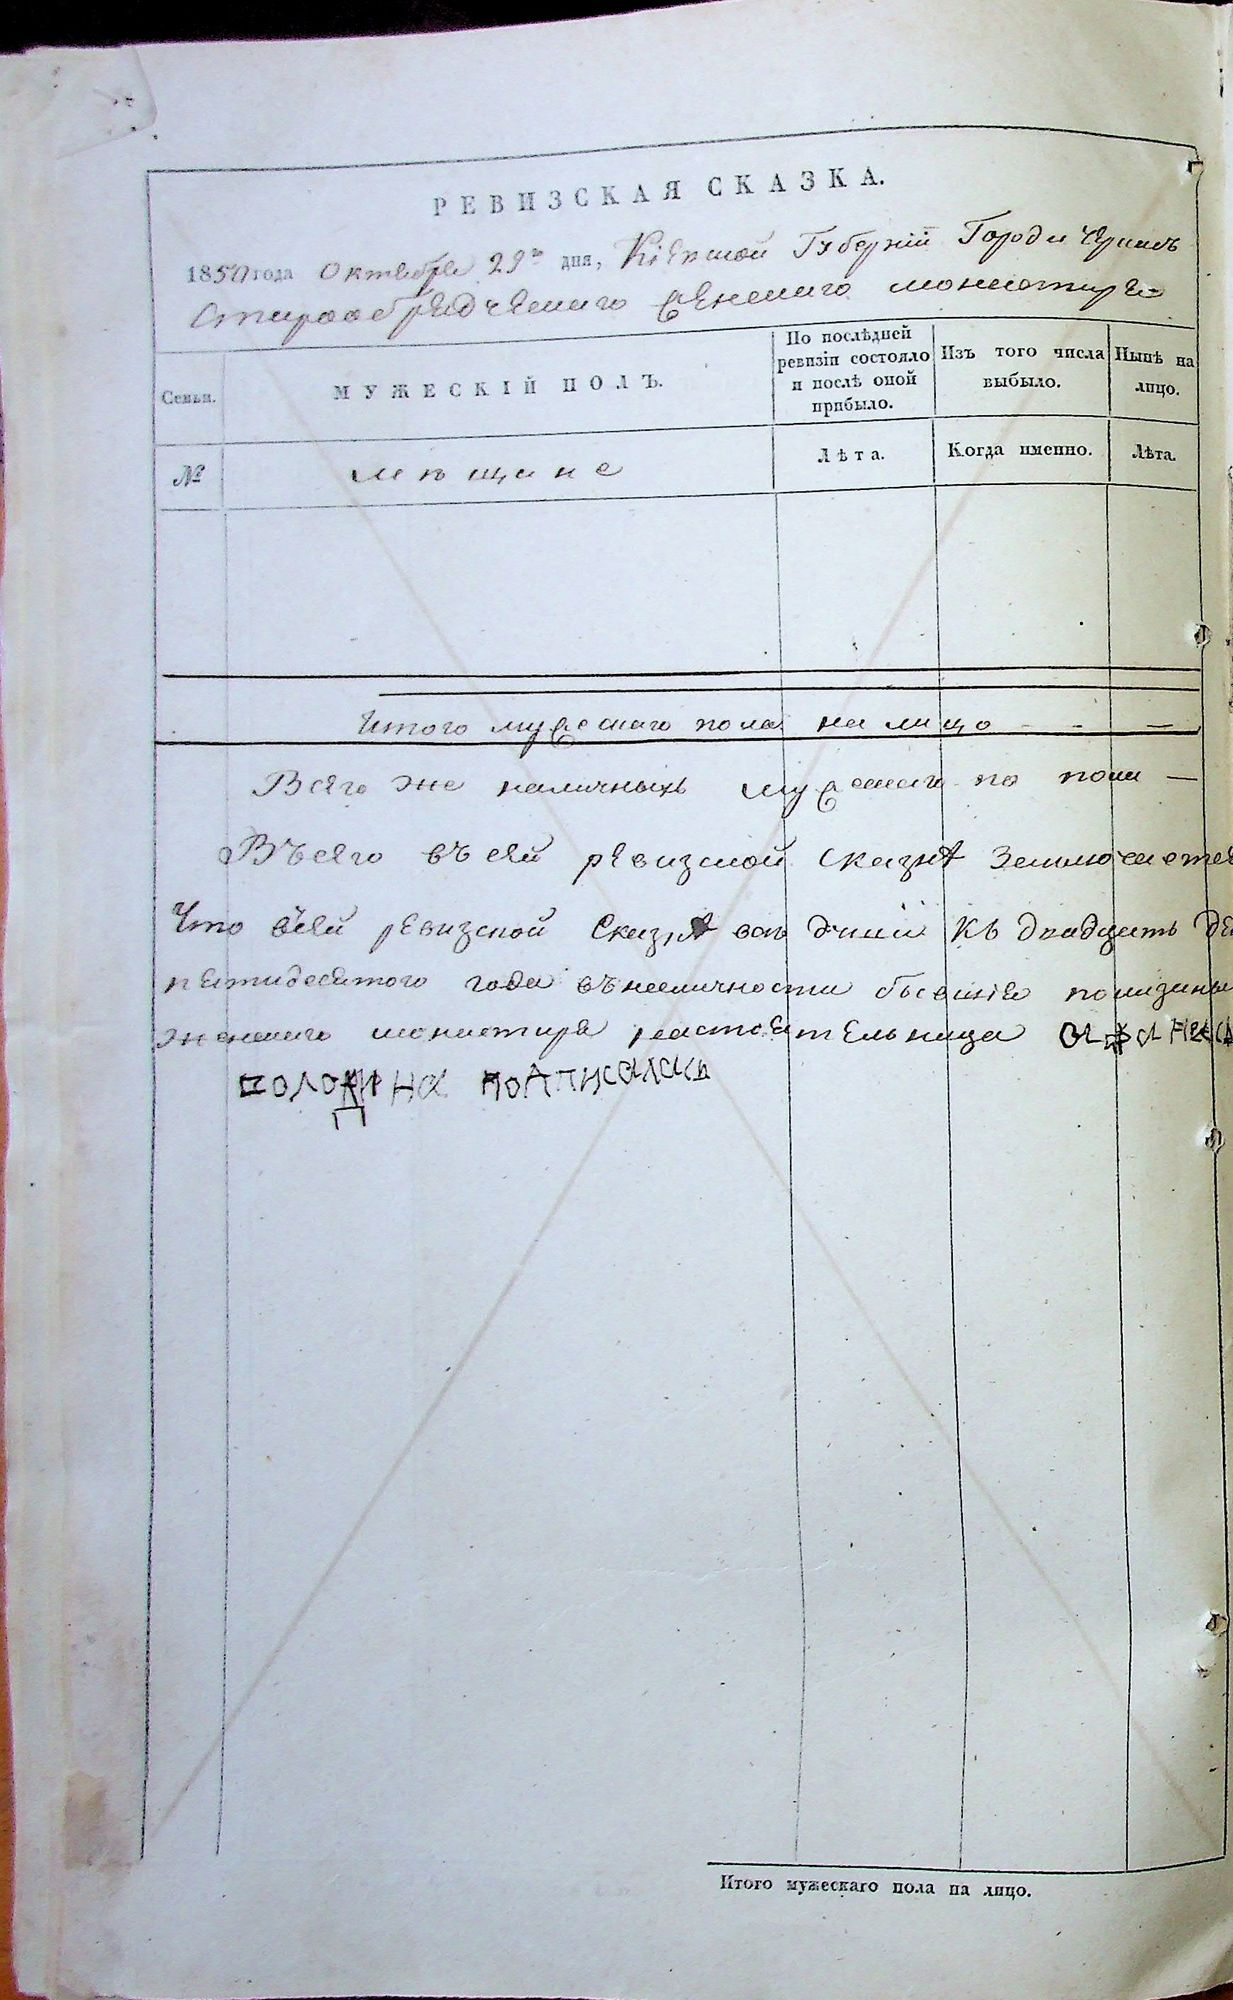 РЕВИЗСКАЯ СКАЗКА.
1850 года Октября 29го дня, Кіевской Губерніи Города Черкасъ
Старообрядческаго Женскаго монастыря
Семьи.
МУЖЕСКІЙ ПОЛЪ.
По послѣдней ревизіи состояло и послѣ оной прибыло.
Изъ того числа выбыло.
Нынѣ на лицо.
№
мещане
Лѣта.
Когда именно.
Лѣта.
Итого мужескаго пола на лицо - - -
Всего же наличныхъ мужескаго по полу —
Въсего въ сей ревизской сказкѣ
Что всей ревизской Сказкѣ всѣ души къ двадцать
пятидесятого года въ наличности бывшіе показаны
женского монастыря настоятельница
подписалась
Итого мужескаго пола на лицо.